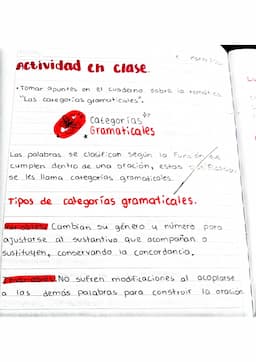 Actividad en clase.
•Tomar apuntes en el cuaderno sobre la temática
"Las categorías gramaticales".
Categorías
Gramaticales
Las palabras se clasifican según la Función que
cumplen dentro de una oración, estas
se les llama categorías gramaticales.
Tipos de categorías gramaticales.
Variables: Cambian su género y número para
ajustarse al sustantivo que acompañan o
sustituyen, conservando la concordancia.
Invariables: No sufren modificaciones al acoplarse
a las demás palabras para construir la oración